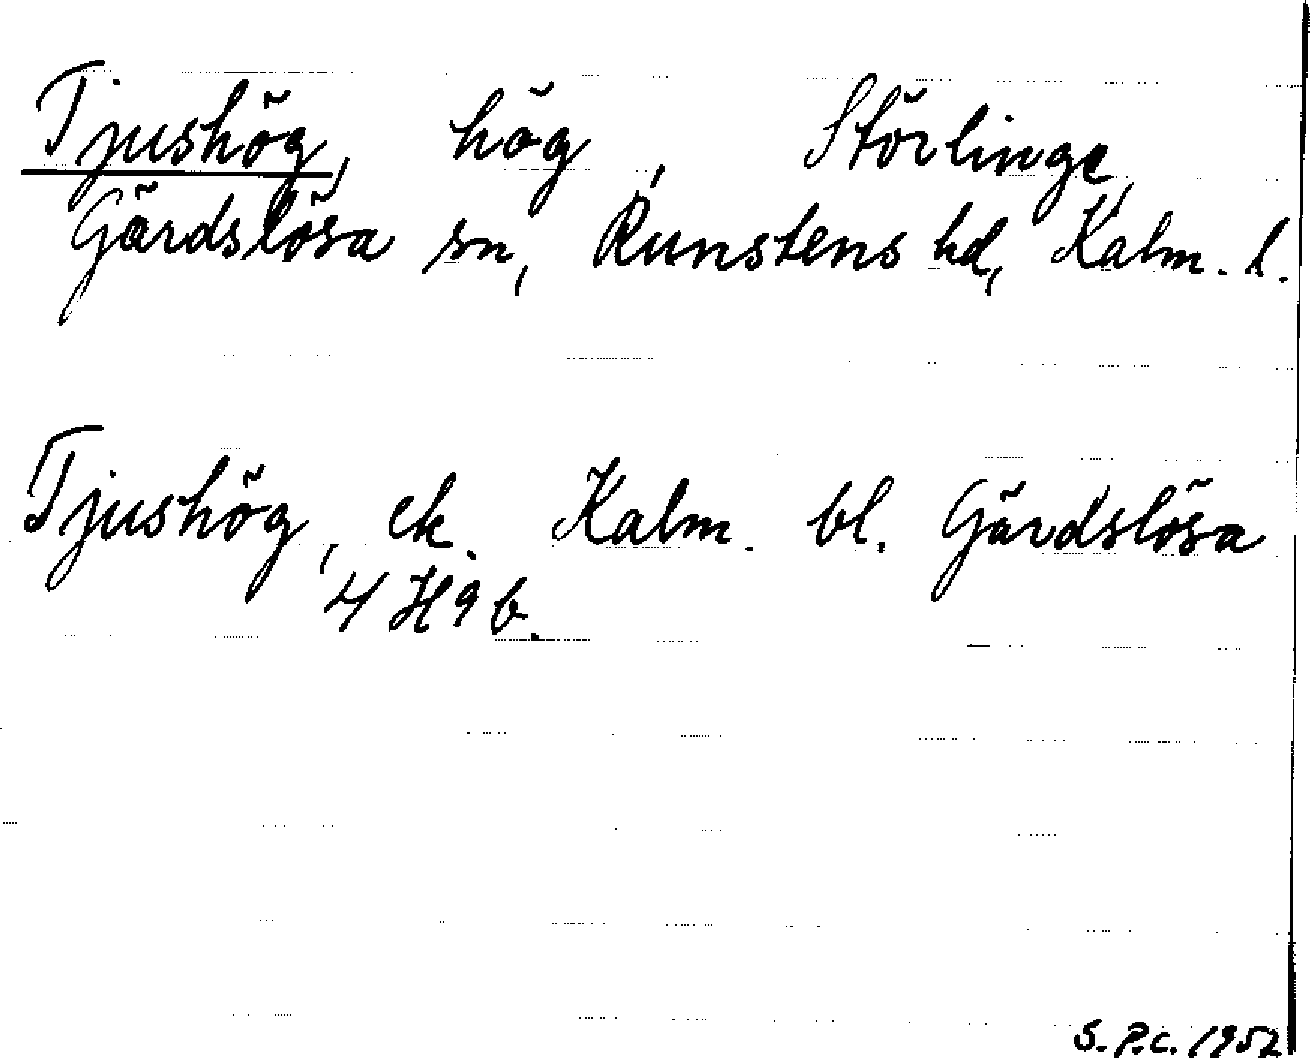 Tjushög, hög, Störlinge,
Gärdslösa sn, Runstens hd, Kalm. l.
Tjushög, ek. Kalm. bl. Gärdslösa
4 H 9 b.
S. P.C. 1952